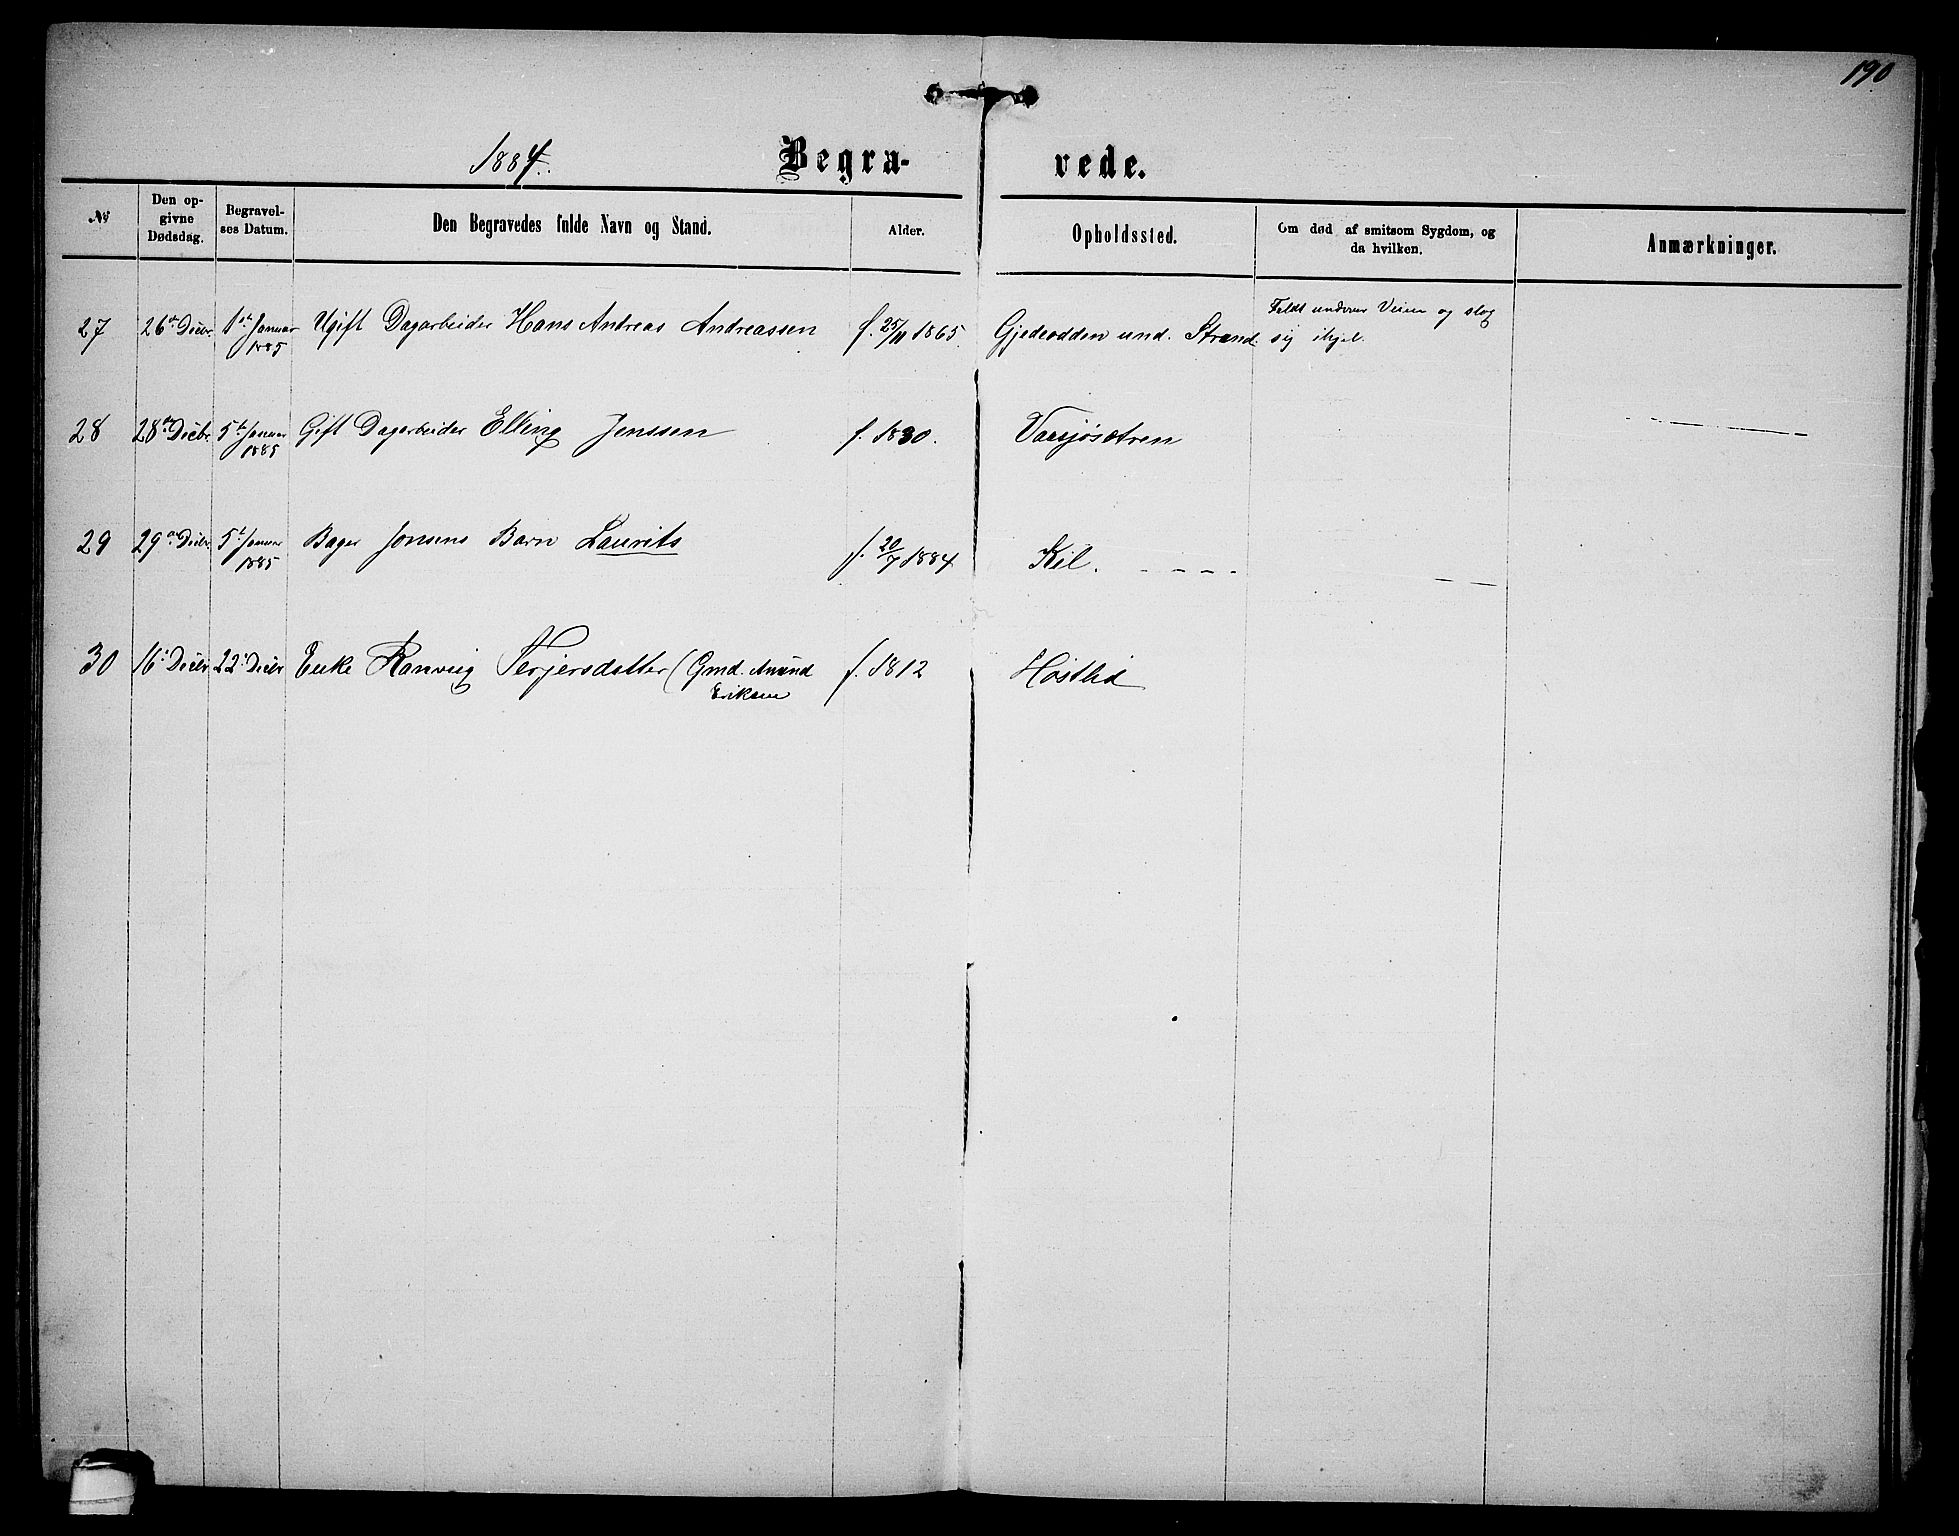 190
1884.
Begra-
vede.
№
Den op-
givne
Dødsdag.
Begravel-
ses Datum.
Den Begravedes fulde Navn og Stand.
Alder.
Opholdssted.
Om død af smitsom Sygdom, og
da hvilken.
Anmærkninger.
27 26de Decbr. 1ste Januar 1885 Ugift Dagarbeider Hans Andreas Andreassen f. 25/11 1865. Gjedeodden und. Strand. Faldt undover Veien og slog
sig ihjel.
28 28de Decbr. 5te Januar 1885 Gift Dagarbeider Elling Jenssen f. 1830.
29 29de Decbr. 5te Januar 1885 Bager Jonsens Barn Laurits f. 20/7 1884 Kil. - - - -
30 16de Decbr 22de Decbr Enke Ranveig Terjersdatter (Gmd. Anund
Eriksen f. 1812 Høstlid